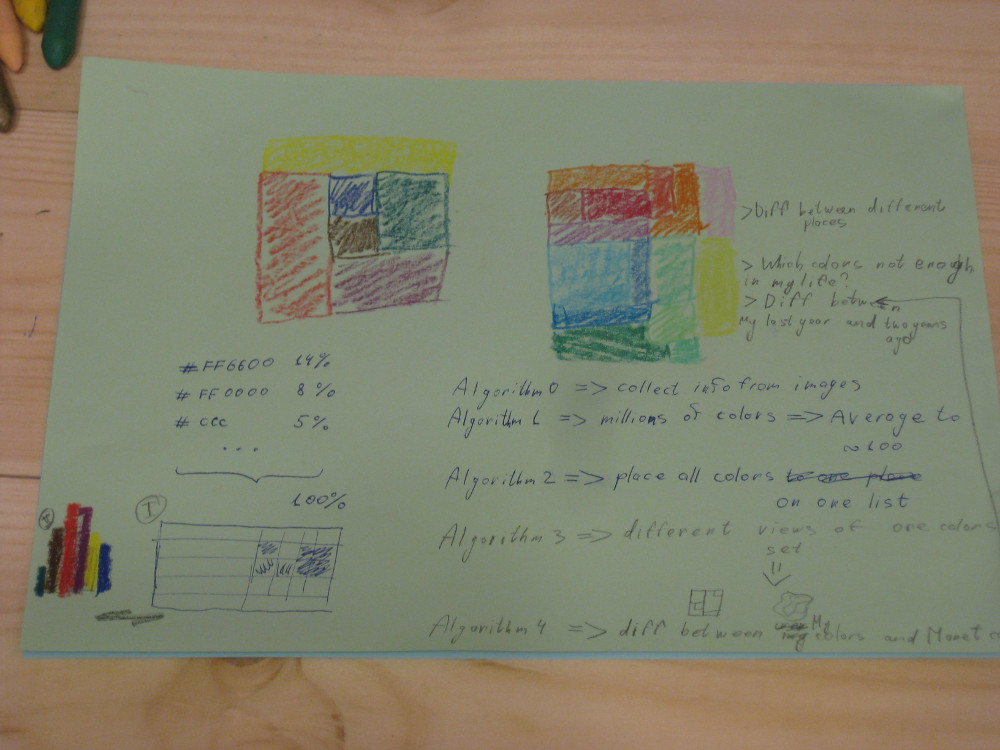 >Diff between different
places
> Which colors not enough
in my life?
> Diff between
My last year and two years
ago
#FF6600 14%
#FF0000 8%
#ccc 5%
...
100%
I
Algorithm 0 => collect info from images
Algorithm 1 => millions of colors => Average to
~100
Algorithm 2 => place all colors to one place
on one list
Algorithm 3 => different views of one colors
set
Algorithm 4 => diff between my My colors and Monet